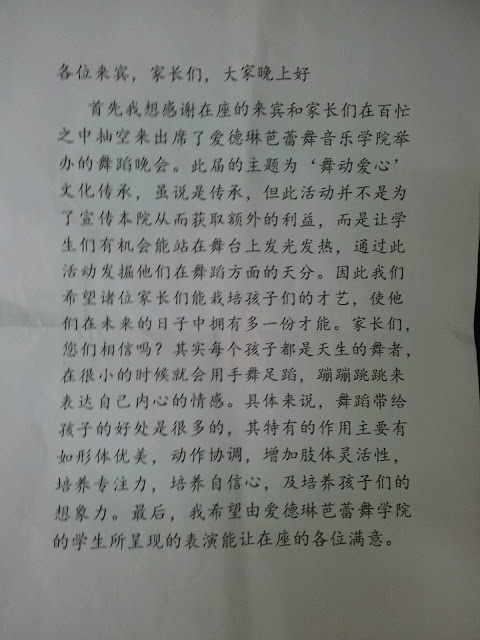 各位来宾，家长们，大家晚上好
首先我想感谢在座的来宾和家长们在百忙
之中抽空来出席了爱德琳芭蕾舞音乐学院举
办的舞蹈晚会。此届的主题为‘舞动爱心’
文化传承，虽说是传承，但此活动并不是为
了宣传本院从而获取额外的利益，而是让学
生们有机会能站在舞台上发光发热，通过此
活动发掘他们在舞蹈方面的天分。因此我们
希望诸位家长们能栽培孩子们的才艺，使他
们在未来的日子中拥有多一份才能。家长们，
您们相信吗？其实每个孩子都是天生的舞者，
在很小的时候就会用手舞足蹈，蹦蹦跳跳来
表达自己内心的情感。具体来说，舞蹈带给
孩子的好处是很多的，其特有的作用主要有
如形体优美，动作协调，增加肢体灵活性，
培养专注力，培养自信心，及培养孩子们的
想象力。最后，我希望由爱德琳芭蕾舞学院
的学生所呈现的表演能让在座的各位满意。